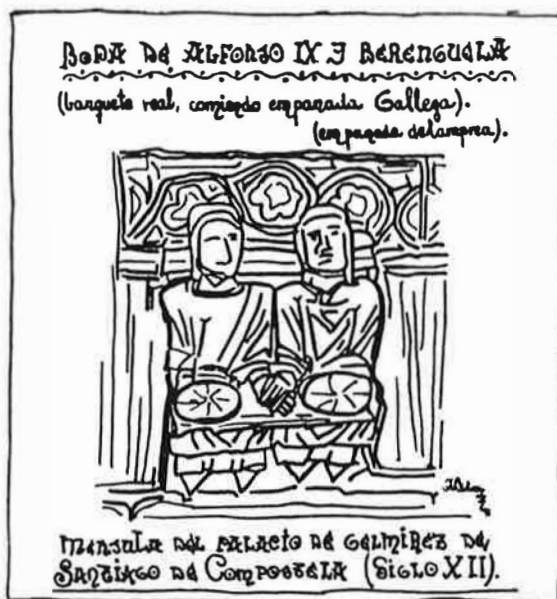 BODA DE ALFONSO IX Y BERENGUELA
(banquete real, comiendo empanada Gallega).
(empanada de lamprea).
MENSULA DEL PALACIO DE GELMIREZ DE
SANTIAGO DE COMPOSTELA (SIGLO XII).